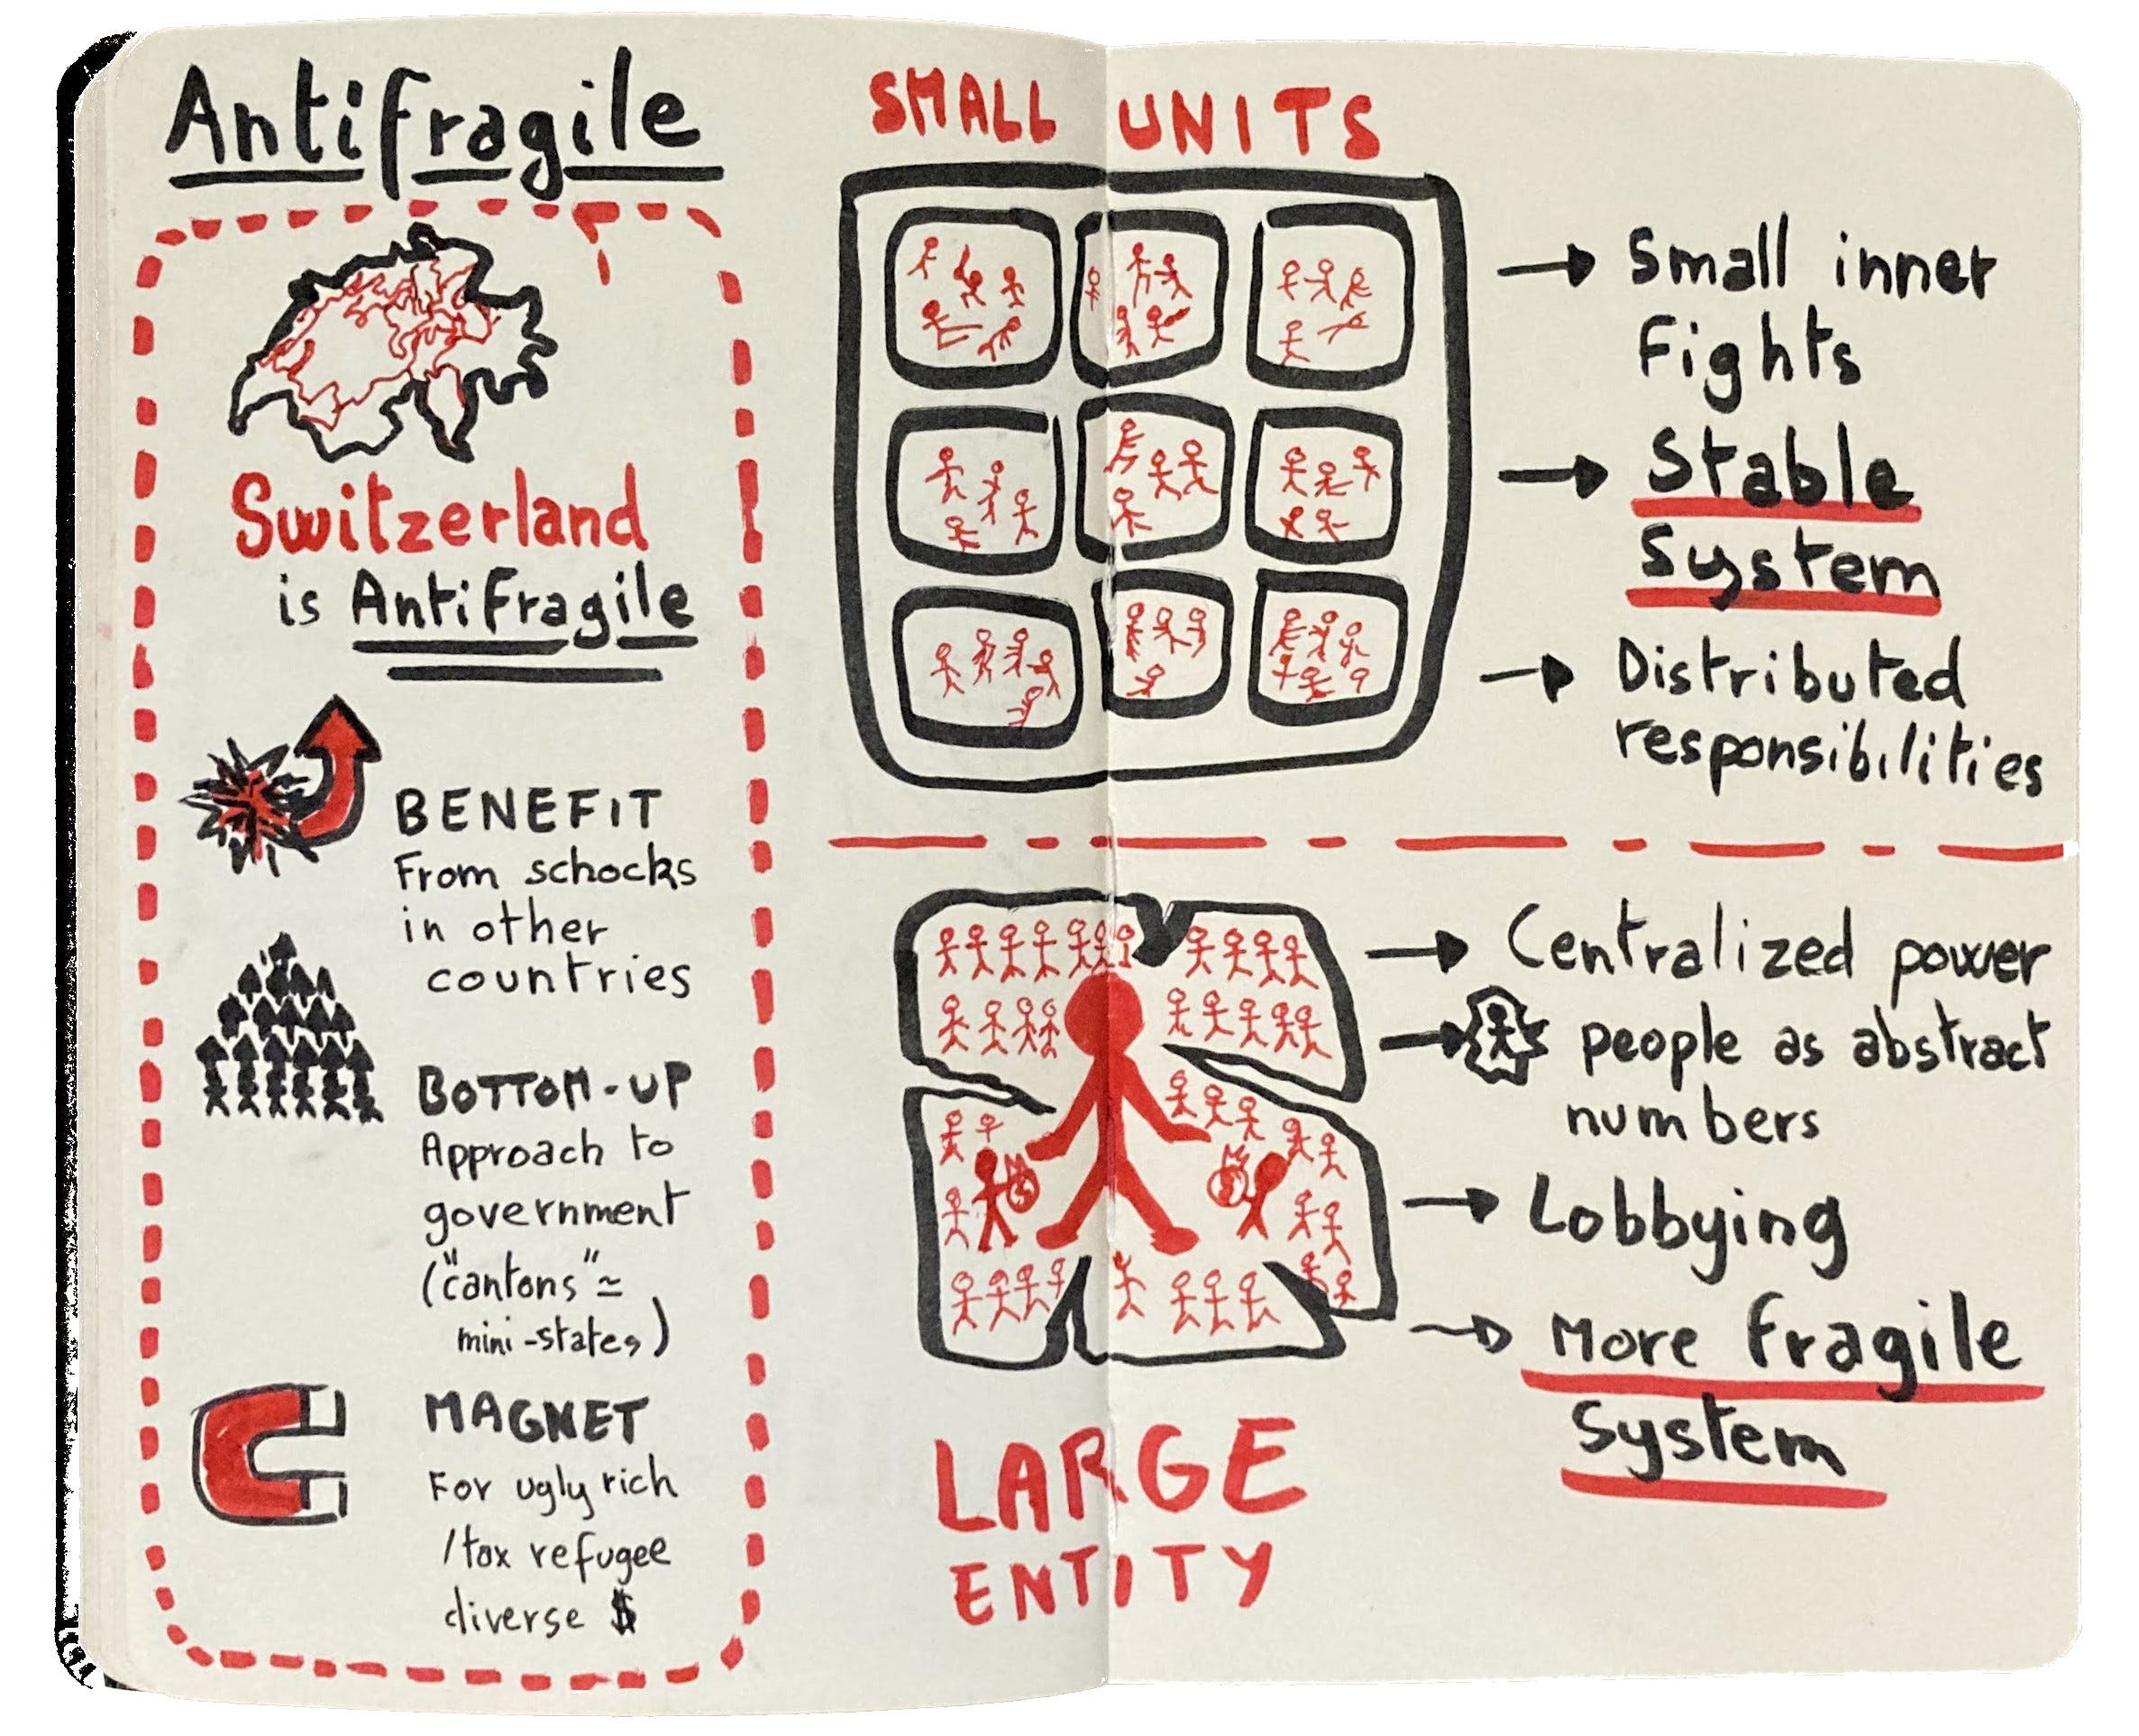 Antifragile
Switzerland
is Antifragile
BENEFIT
From schocks
in other
countries
BOTTOM-UP
Approach to
government
("cantons" ≃
mini-states)
MAGNET
For ugly rich
/tax refugee
diverse $
SMALL UNITS
→ Small inner
Fights
→ Stable
System
→ Distributed
responsibilities
→ Centralized power
→ people as abstract
numbers
→ Lobbying
→ More fragile
System
LARGE
ENTITY